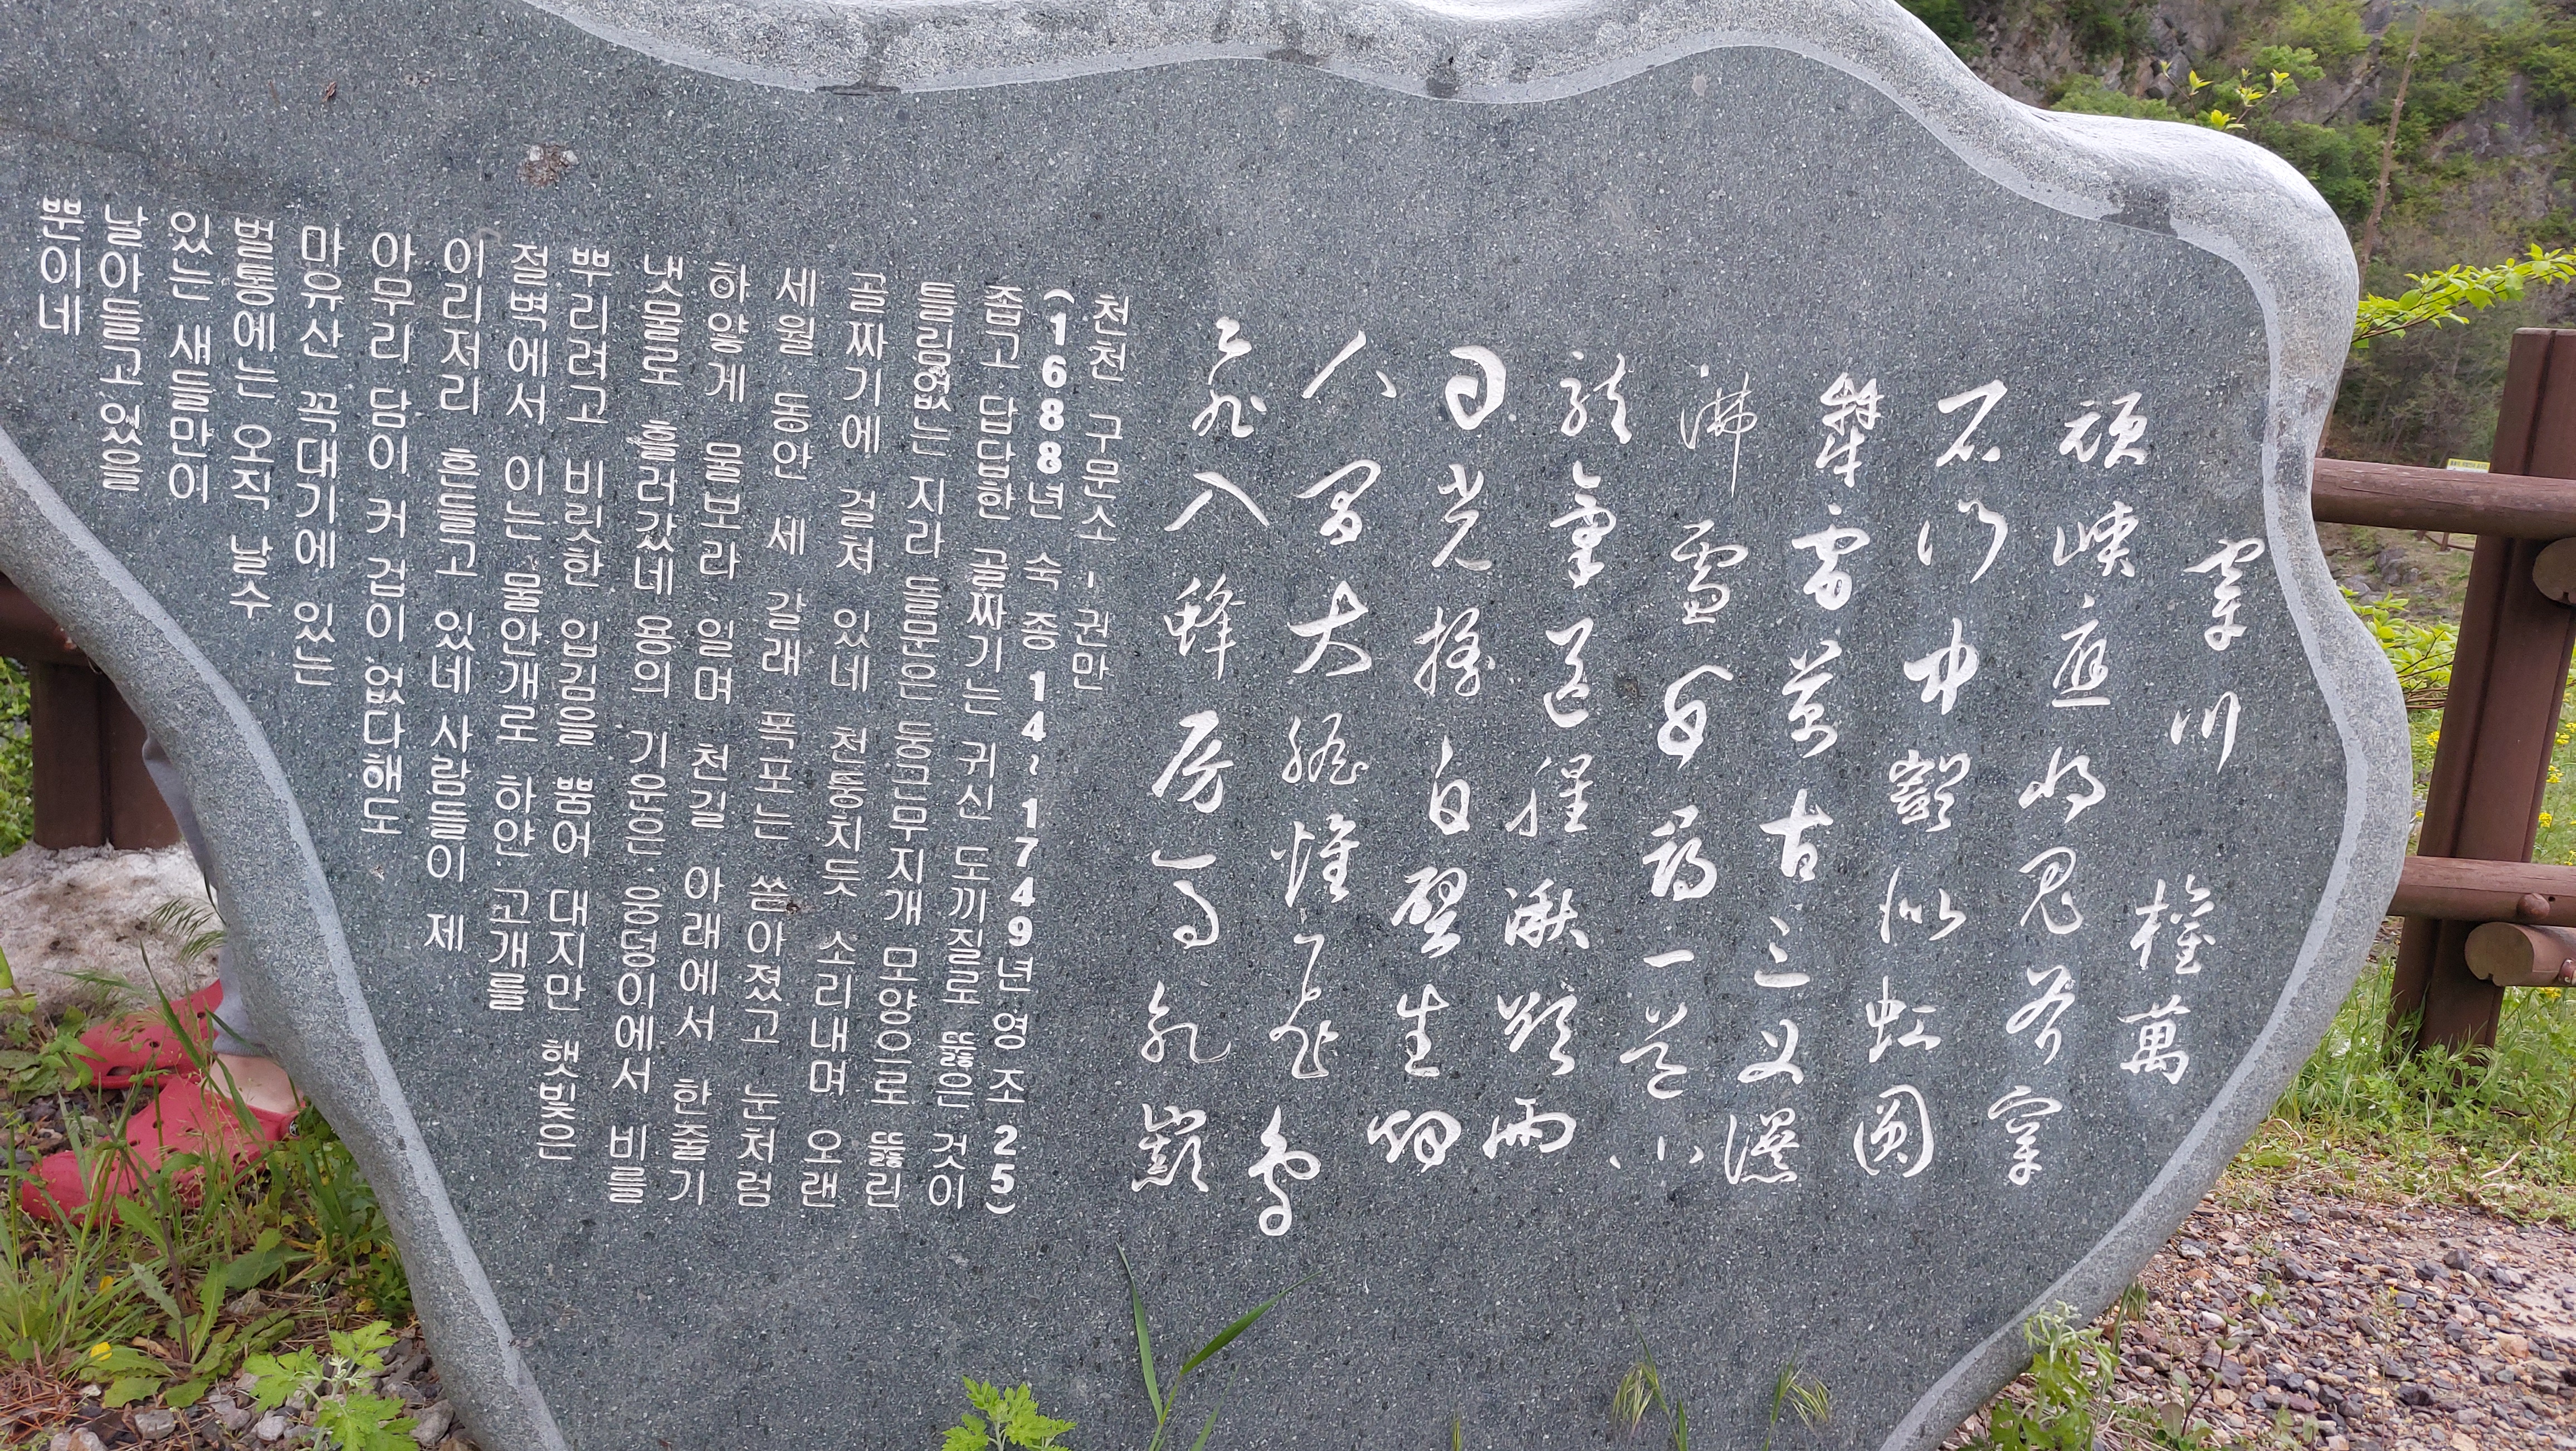 穿川 權萬
頑峽應將鬼斧穿
石門中豁似虹圓
犇雷萬古三叉瀑
沸雪 尋一道川
龍氣 腥湫 雨
日光搖白壁生烟
人間大膽惟飛鳥
飛入蜂房馬乳巓
천천 구문소 - 권만
(1688년 숙종 14~1749년 영조 25)
좁고 답답한 골짜기는 귀신 도끼질로 뚫은 것이
틀림없는 지라 돌문은 둥근무지개 모양으로 뚫린
골짜기에 걸쳐 있네 천둥치듯 소리내며 오랜
세월 동안 세 갈래 폭포는 쏟아졌고 눈처럼
하얗게 물보라 일며 천길 아래에서 한줄기
냇물로 흘러갔네 용의 기운은 웅덩이에서 비를
뿌리려고 비릿한 입김을 뿜어 대지만 햇빛은
절벽에서 이는 물안개로 하얀 고개를
이리저리 흔들고 있네 사람들이 제
아무리 담이 커 겁이 없다해도
마유산 꼭대기에 있는
벌통에는 오직 날수
있는 새들만이
날아들고 있을
뿐이네